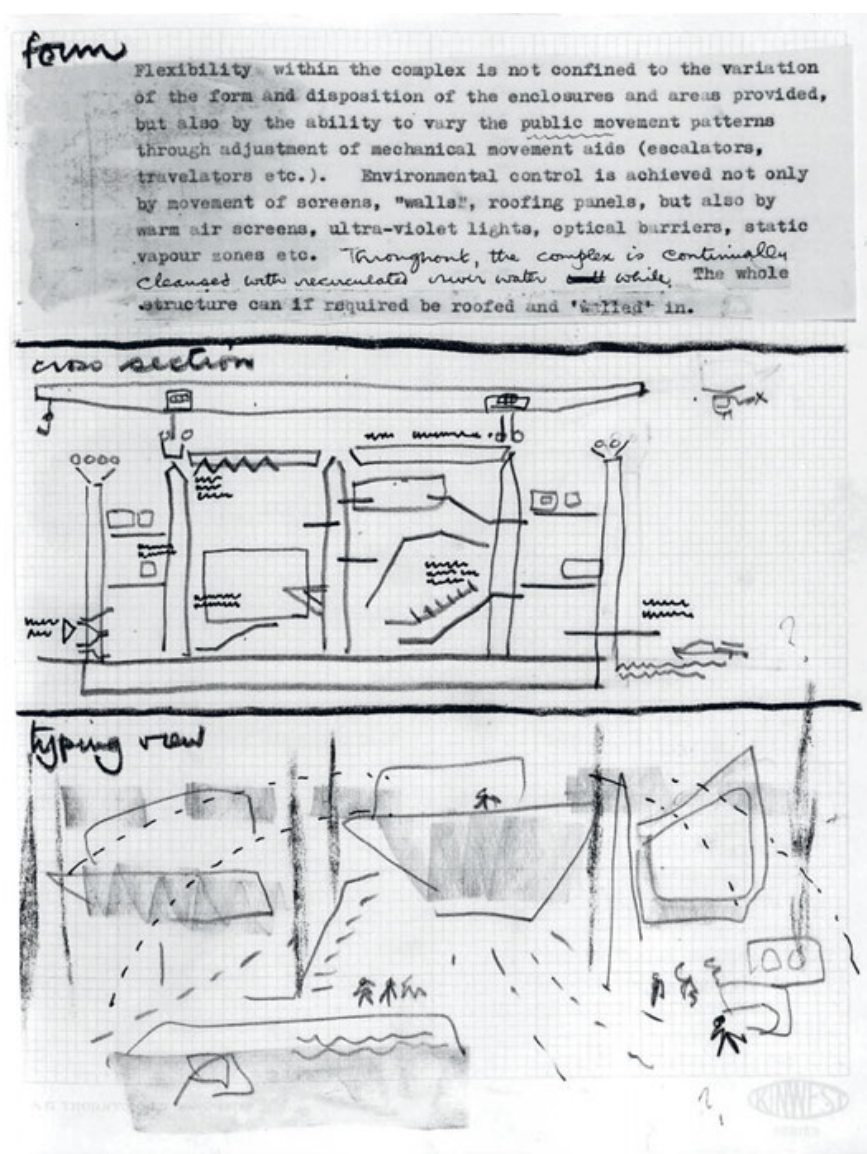 form
Flexibility within the complex is not confined to the variation
of the form and disposition of the enclosures and areas provided,
but also by the ability to vary the public movement patterns
through adjustment of mechanical movement aids (escalators,
travelators etc.). Environmental control is achieved not only
by movement of screens, "walls", roofing panels, but also by
warm air screens, ultra-violet lights, optical barriers, static
vapour zones etc. Throughout, the complex is continually
cleansed with recirculated river water while. The whole
structure can if required be roofed and 'walled' in.
cross section
?
typing view
?
KINWEST
SERIES